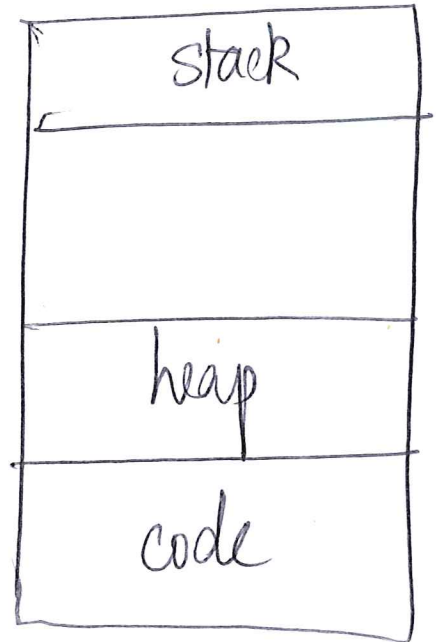 stack
heap
code